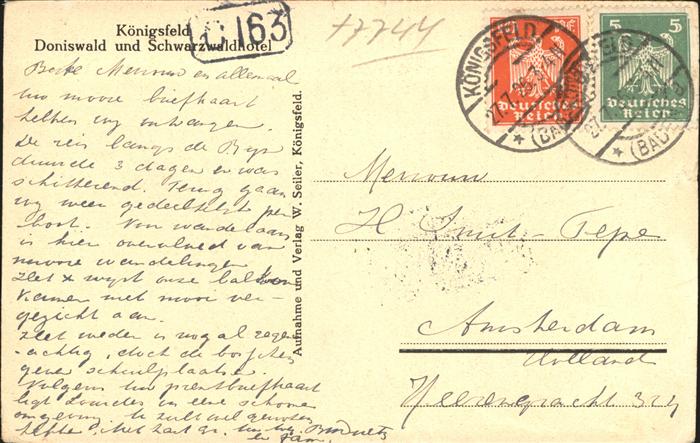 Königsfeld
Doniswald und Schwarzwaldhotel
C 163
+7744
Beste Mevrouw en allemaal
uw mooie briefkaart
hebben wij ontvangen.
De reis langs de Rijn
duurde 3 dagen en was
schitterend. Terug gaan
wij weer gedeeltelijk per
boot. Van wandelaars
is hier overvloed van
mooie wandelingen
Het x wijst onze balkon
kamer met mooi ver-
gezicht aan.
Het weder is nogal regen
-achtig, doch de bosjes
geven schuilplaatsen.
Volgens uw prentbriefkaart
ligt Lourdes in eene schoone
omgeving. U zult wel genoten
hebben. Met hart. gr.
en fam.
Aufnahme und Verlag W. Seiler, Königsfeld.
KÖNIGSFELD
27.7.26
(BAD
Deutsches
Reich
5 5
Deutsches
Reich
(BAD
Mevrouw
H Smit-Tepe
Amsterdam
Holland
Heerengracht 324